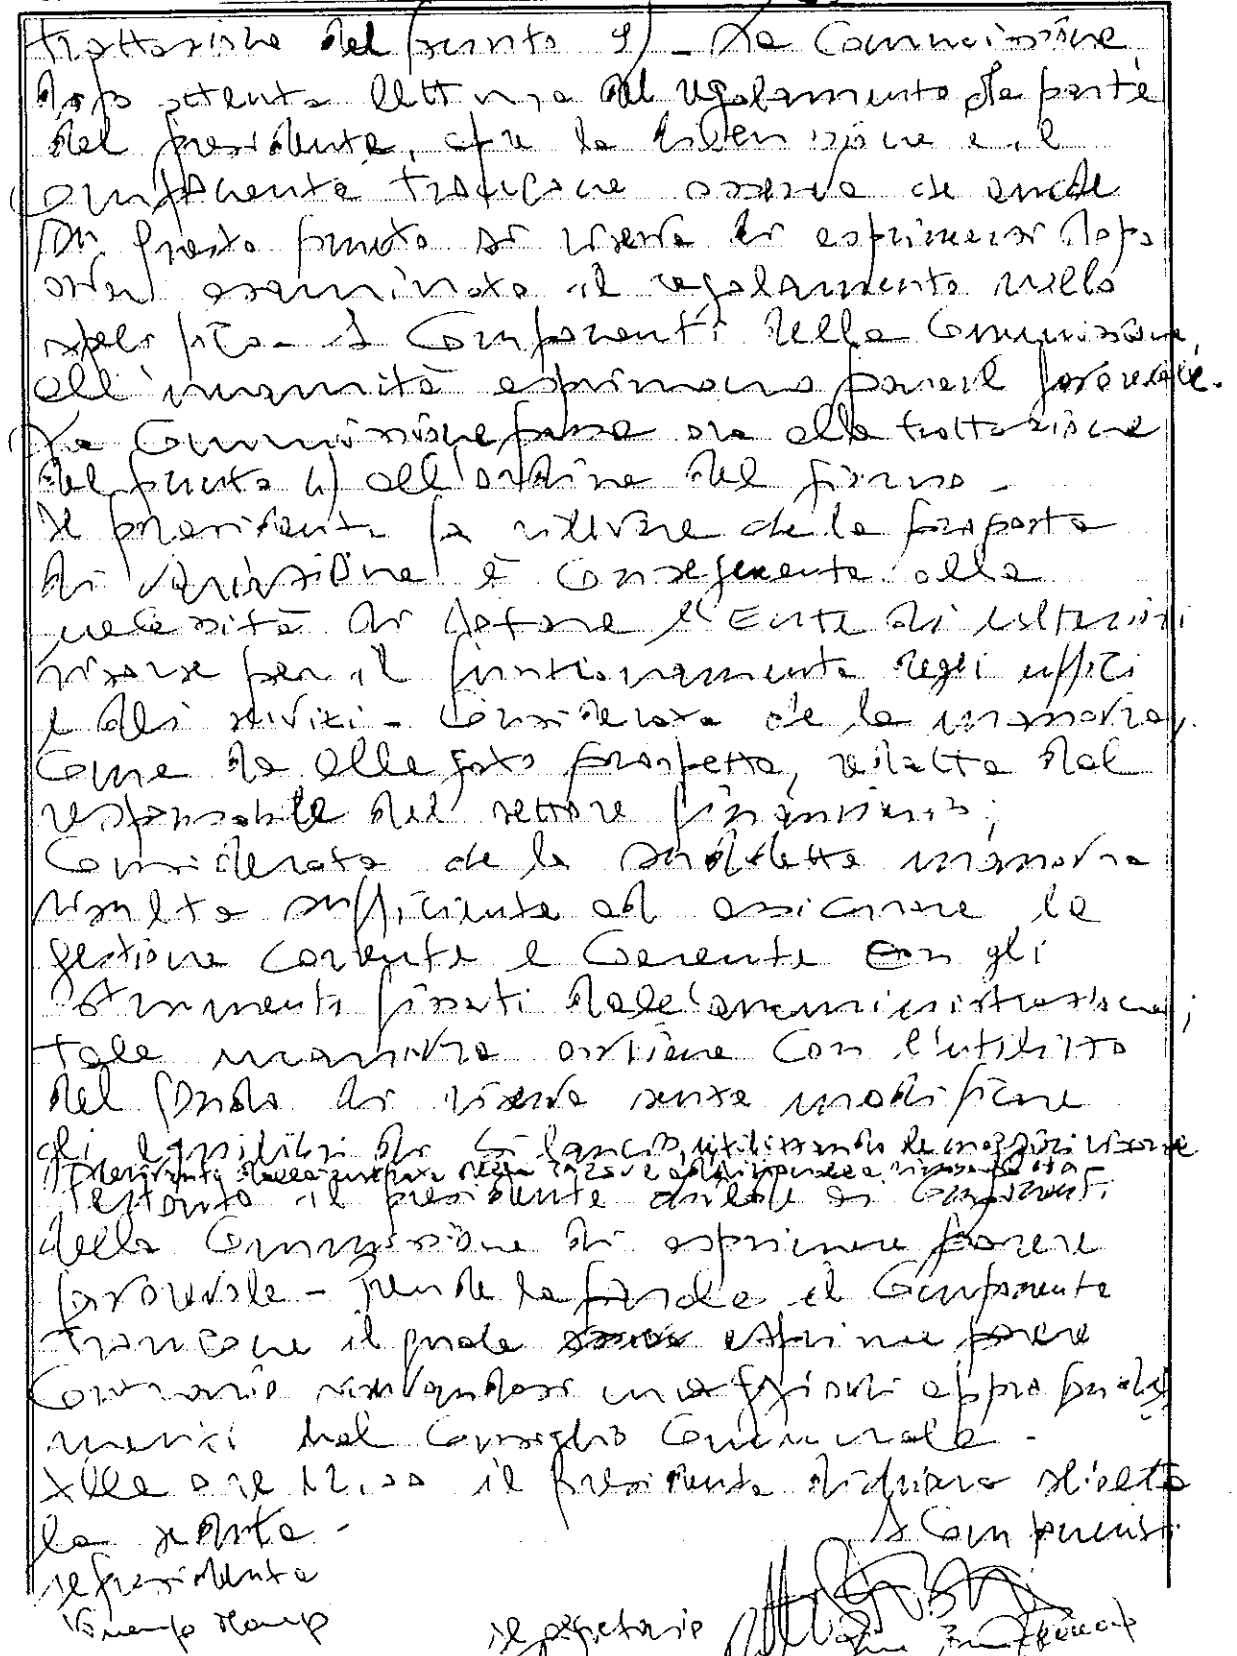 trattazione del punto 3) - La Commissione
dopo attenta lettura del regolamento da parte
del presidente, apre la discussione e il
componente Trancone osserva che anche
su questo punto si riserva di esprimersi dopo
aver esaminato il regolamento nello
specifico - I Componenti della Commissione,
all'unanimità esprimono parere favorevole.
La Commissione passa ora alla trattazione
del punto 4) all'ordine del giorno -
Il presidente fa rilevare che la proposta
di variazione è conseguente alla
necessità di dotare l'Ente di ulteriori
risorse per il funzionamento degli uffici
e dei servizi - Considerato che la manovra,
come da allegato prospetto, redatto dal
responsabile del settore finanziario;
Considerato che la suddetta manovra
risulta sufficiente ad assicurare la
gestione corrente e coerente con gli
strumenti fissati dall'amministrazione;
tale manovra avviene con l'utilizzo
del fondo di riserva senza modificare
gli equilibri di bilancio, utilizzando le maggiori risorse
derivanti
Pertanto il presidente chiede ai Componenti
della Commissione di esprimere parere
favorevole - Prende la parola il Componente
Trancone il quale esprime parere
contrario riservandosi maggiori approfondi
menti nel Consiglio Comunale -
Alle ore 12,00 il presidente dichiara sciolta
la seduta -
I Componenti
il presidente
il segretario